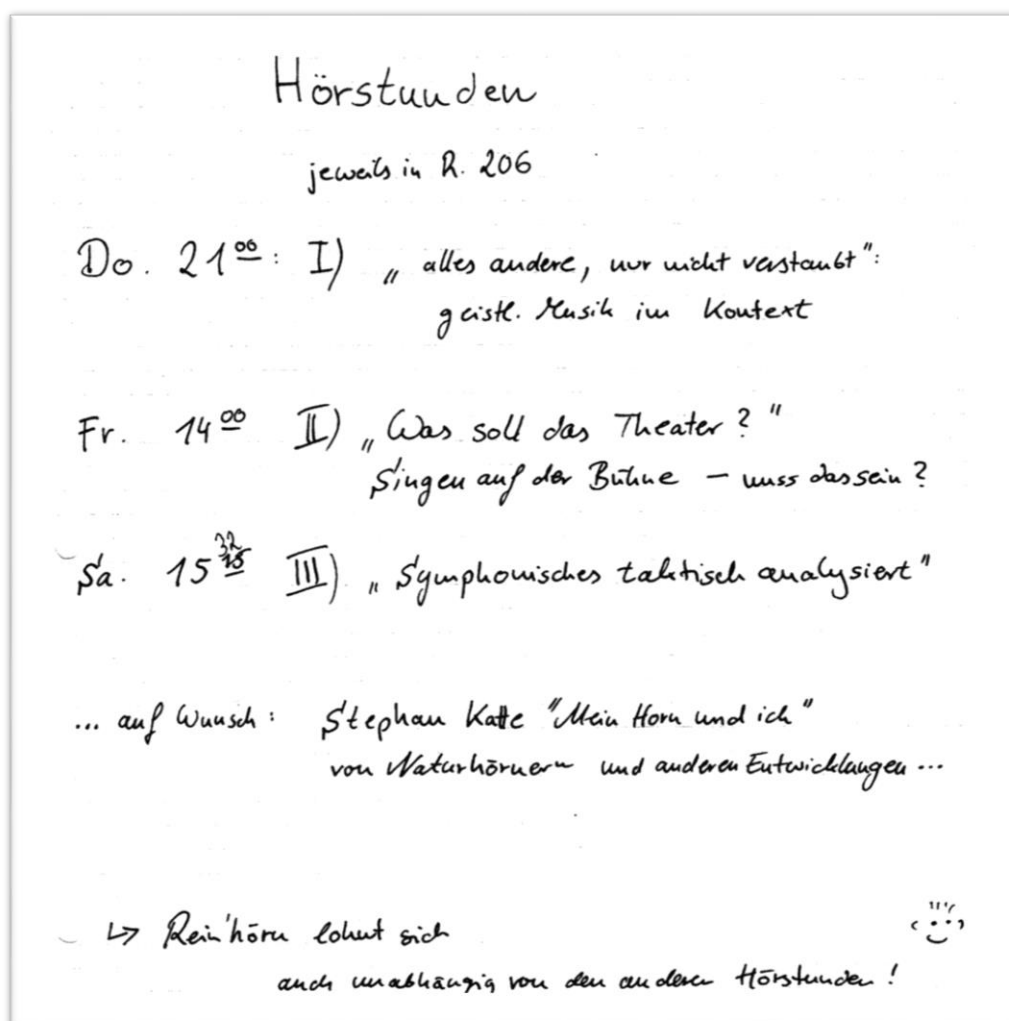 Hörstunden
jeweils in R. 206
Do. 21⁰⁰: I) „alles andere, nur nicht verstaubt“:
geistl. Musik im Kontext
Fr. 14⁰⁰ II) „Was soll das Theater?“
Singen auf der Bühne – muss das sein?
Sa. 15³² III) „Symphonisches taktisch analysiert“
... auf Wunsch: Stephan Katte "Mein Horn und ich"
von Naturhörnern und anderen Entwicklungen ...
↳ Rein'hörn lohnt sich
auch unabhängig von den anderen Hörstunden!